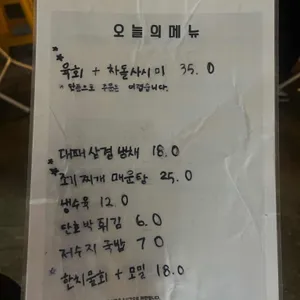 오늘의메뉴
육회 + 차돌사시미 35.0
* 단품으로 주문은 어렵습니다.
대패살결냉채 18.0
조기찌개 매운탕 25.0
냉수육 12.0
단호박 튀김 6.0
저수지 국밥 7.0
* 한치물회 + 모밀 18.0